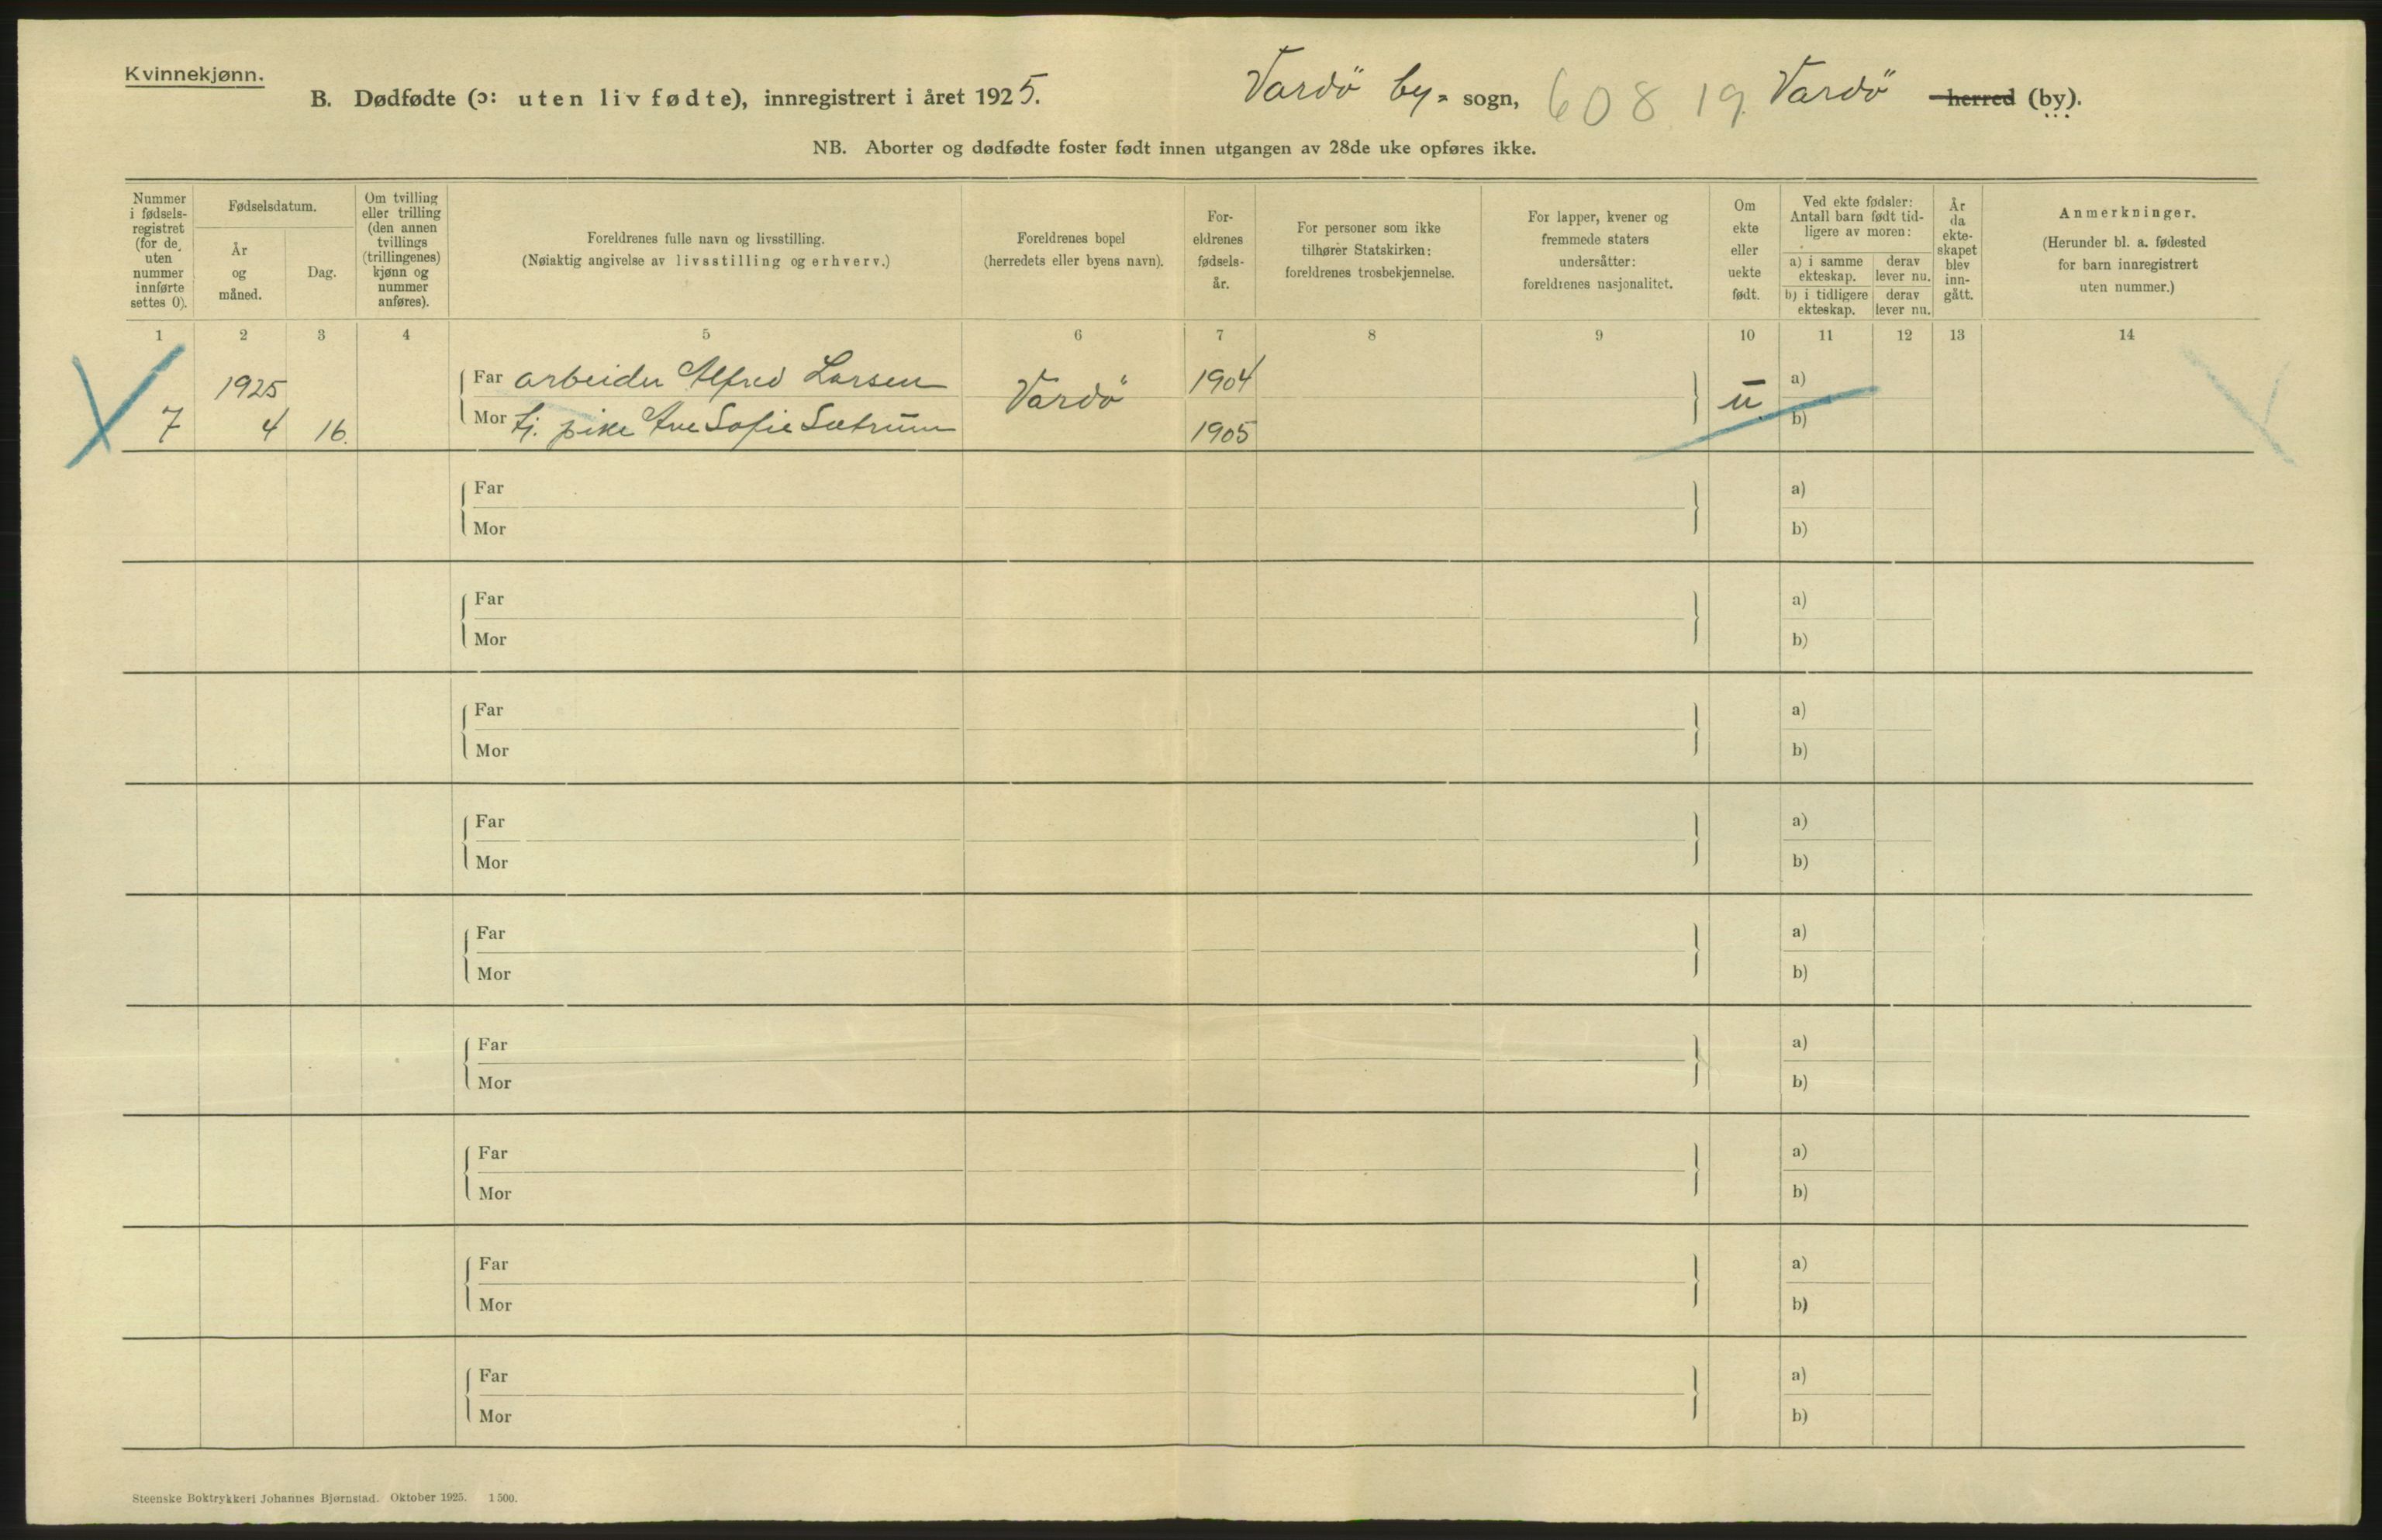 Kvinnekjønn.
B. Dødfødte (ɔ: uten liv fødte), innregistrert i året 1925. Vardö by= sogn, 608 19. Vardö herred (by).
NB. Aborter og dødfødte foster født innen utgangen av 28de uke opføres ikke.
Nummer i fødsels-registret (for de uten nummer innførte settes 0).
Fødselsdatum.
År og måned.
Dag.
Om tvilling eller trilling (den annen tvillings (trillingenes) kjønn og nummer anføres).
Foreldrenes fulle navn og livsstilling.
(Nøiaktig angivelse av livsstilling og erhverv.)
Foreldrenes bopel
(herredets eller byens navn).
For-eldrenes fødsels-år.
For personer som ikke tilhører Statskirken: foreldrenes trosbekjennelse.
For lapper, kvener og fremmede staters undersåtter: foreldrenes nasjonalitet.
Om ekte eller uekte født.
Ved ekte fødsler: Antall barn født tid-ligere av moren:
a) i samme ekteskap. derav lever nu.
b) i tidligere ekteskap. derav lever nu.
År da ekte-skapet blev inn-gått.
Anmerkninger.
(Herunder bl. a. fødested for barn innregistrert uten nummer.)
1 2 3 4 5 6 7 8 9 10 11 12 13 14
1925 Far arbeider Alfred Larsen Vardö 1904 ū a)
7 4 16. Mor tj. pike Sofie Sætrum 1905 b)
Far a)
Mor b)
Far a)
Mor b)
Far a)
Mor b)
Far a)
Mor b)
Far a)
Mor b)
Far a)
Mor b)
Far a)
Mor b)
Far a)
Mor b)
Far a)
Mor b)
Steenske Boktrykkeri Johannes Bjørnstad. Oktober 1925. 1 500.